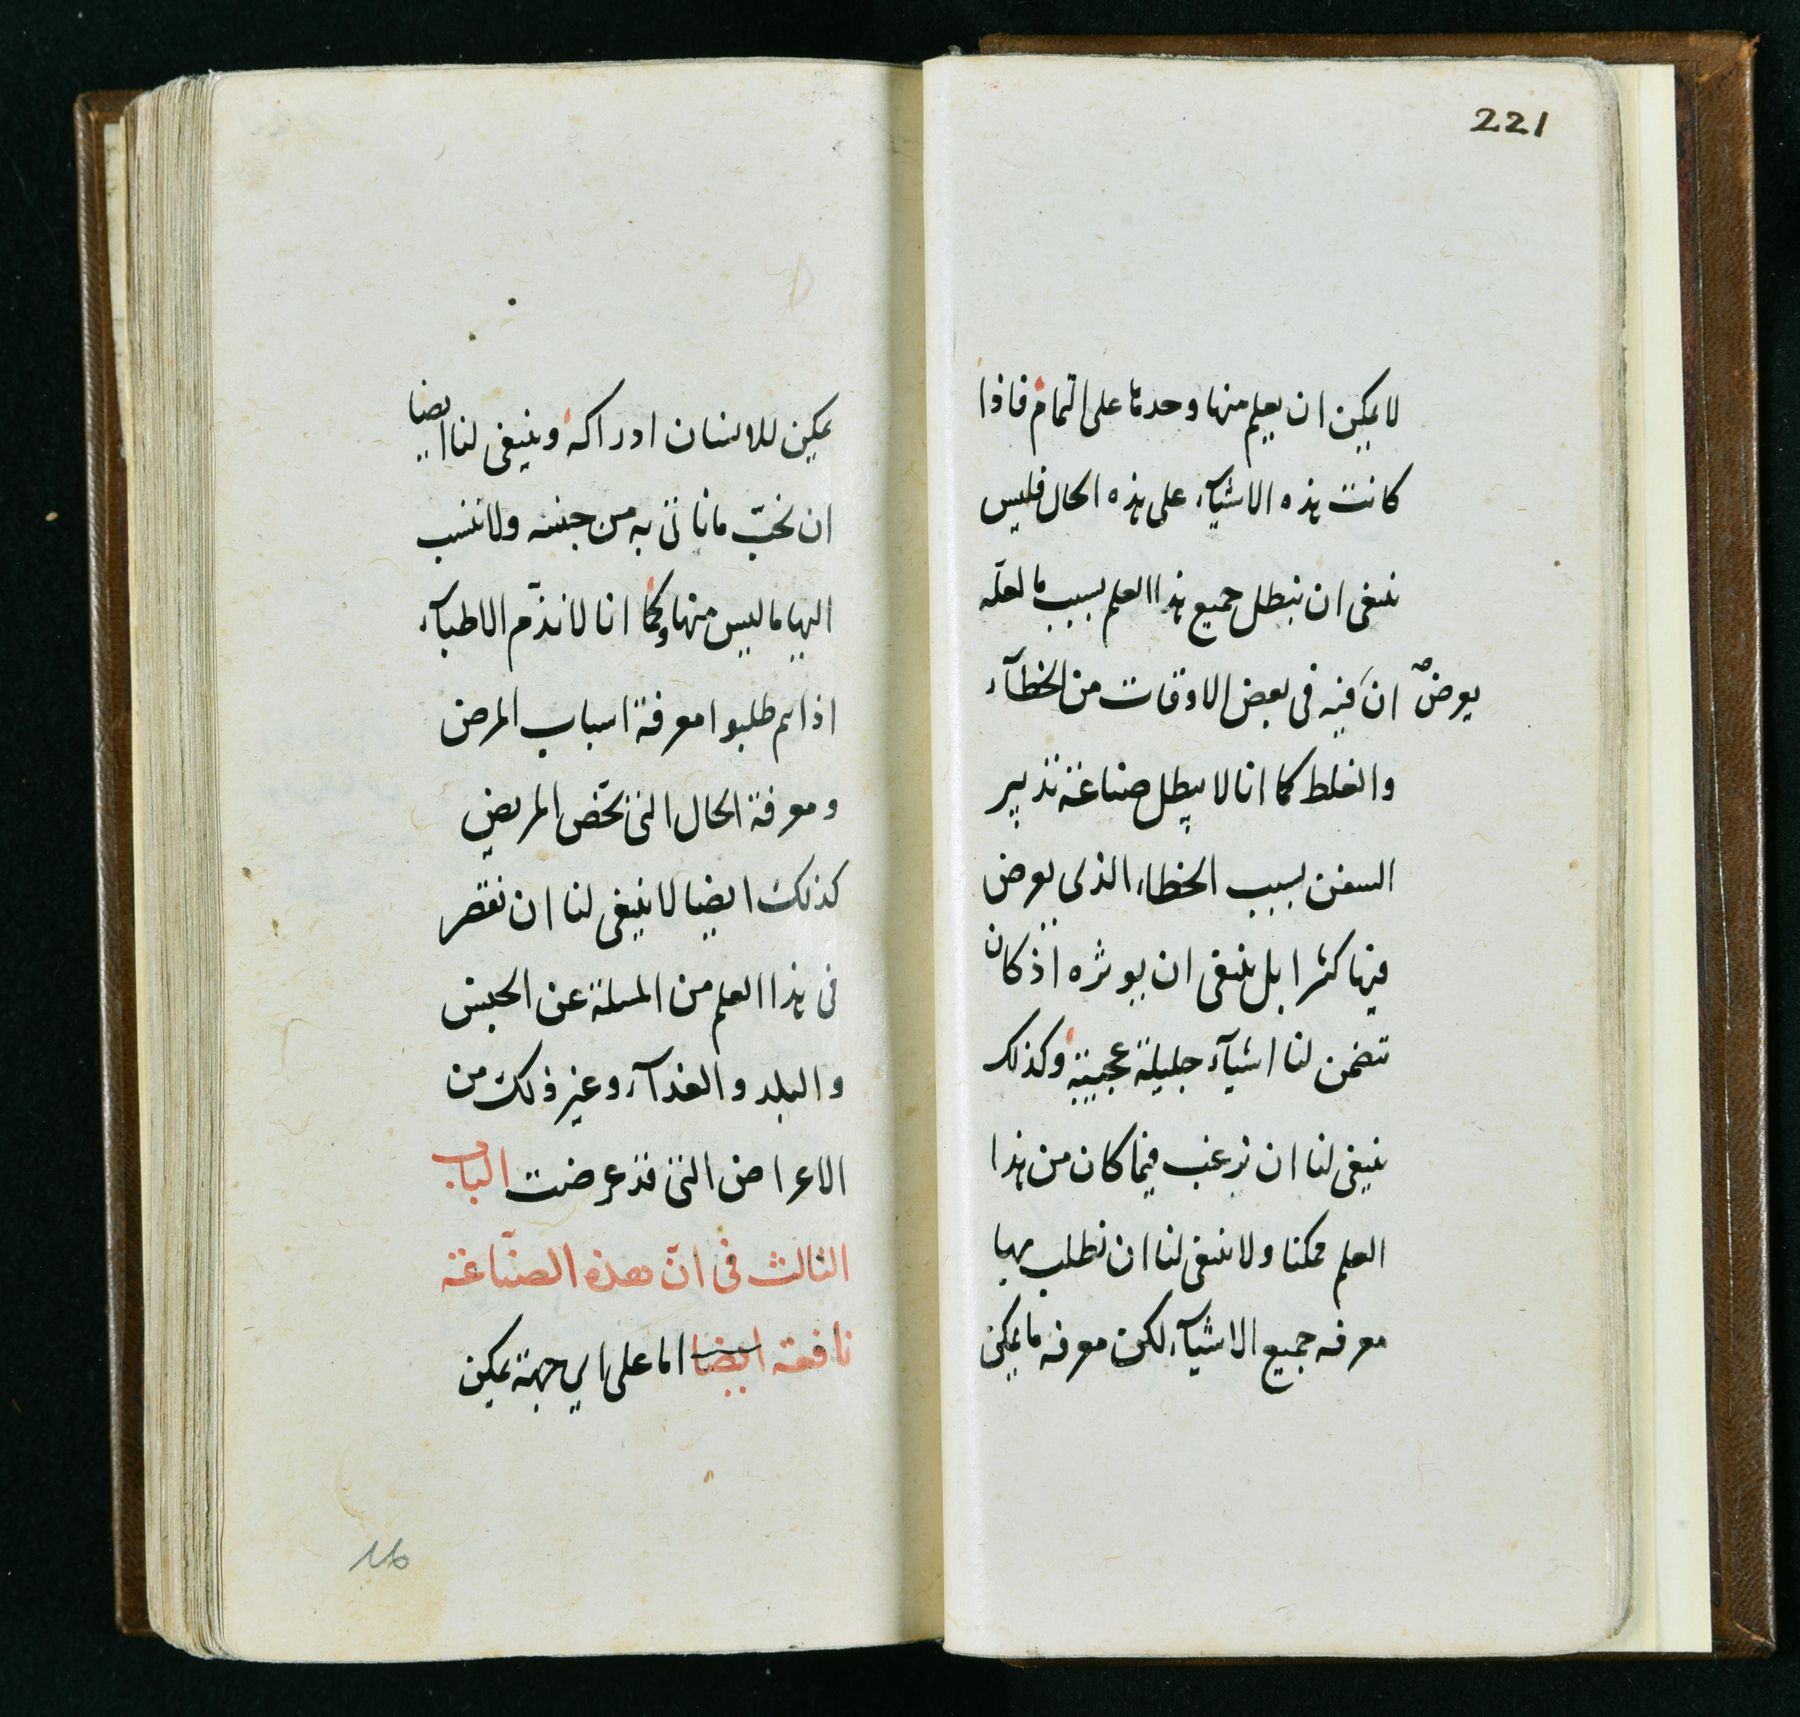 221
لا يمكن ان يعلم منها وحدها على التمام فاذا
كانت هذه الاشيآء على هذه الحال فليس
ينبغى ان نبطل جميع هذا العلم بسبب ما لعلّه
ان يعرض فيه فى بعض الاوقات من الخطآء
والغلط كما انا لا نبطل صناعة تدبير
السفن بسبب الخطاء الذى يعرض
فيها كثيرا بل ينبغى ان نوثره اذ كان
تتضمن لنا اشيآء جليلة عجيبة وكذلك
ينبغى لنا ان نرغب فيما كان من هذا
العلم ممكنا ولا ينبغى لنا ان نطلب بها
معرفه جميع الاشيآء لكن معرفه ما يمكن
يمكن للانسان ادراكه وينبغى لنا ايضا
ان نحبّ ما ناتى به من جنسه ولا ننسب
اليها ما ليس منها وكما انا لا نذّم الاطبآء
اذا هم طلبوا معرفة اسباب المرض
ومعرفة الحال التى تخّص المريض
كذلك ايضا لا ينبغى لنا ان نقصر
فى هذا العلم من المسلة عن الجنس
والبلد والغذآء وغير ذلك من
الاعراض التى قد عرضت الباب
الثالث فى انّ هذه الصنّاعة
نافعة ايضا اما على اي جهة يمكن